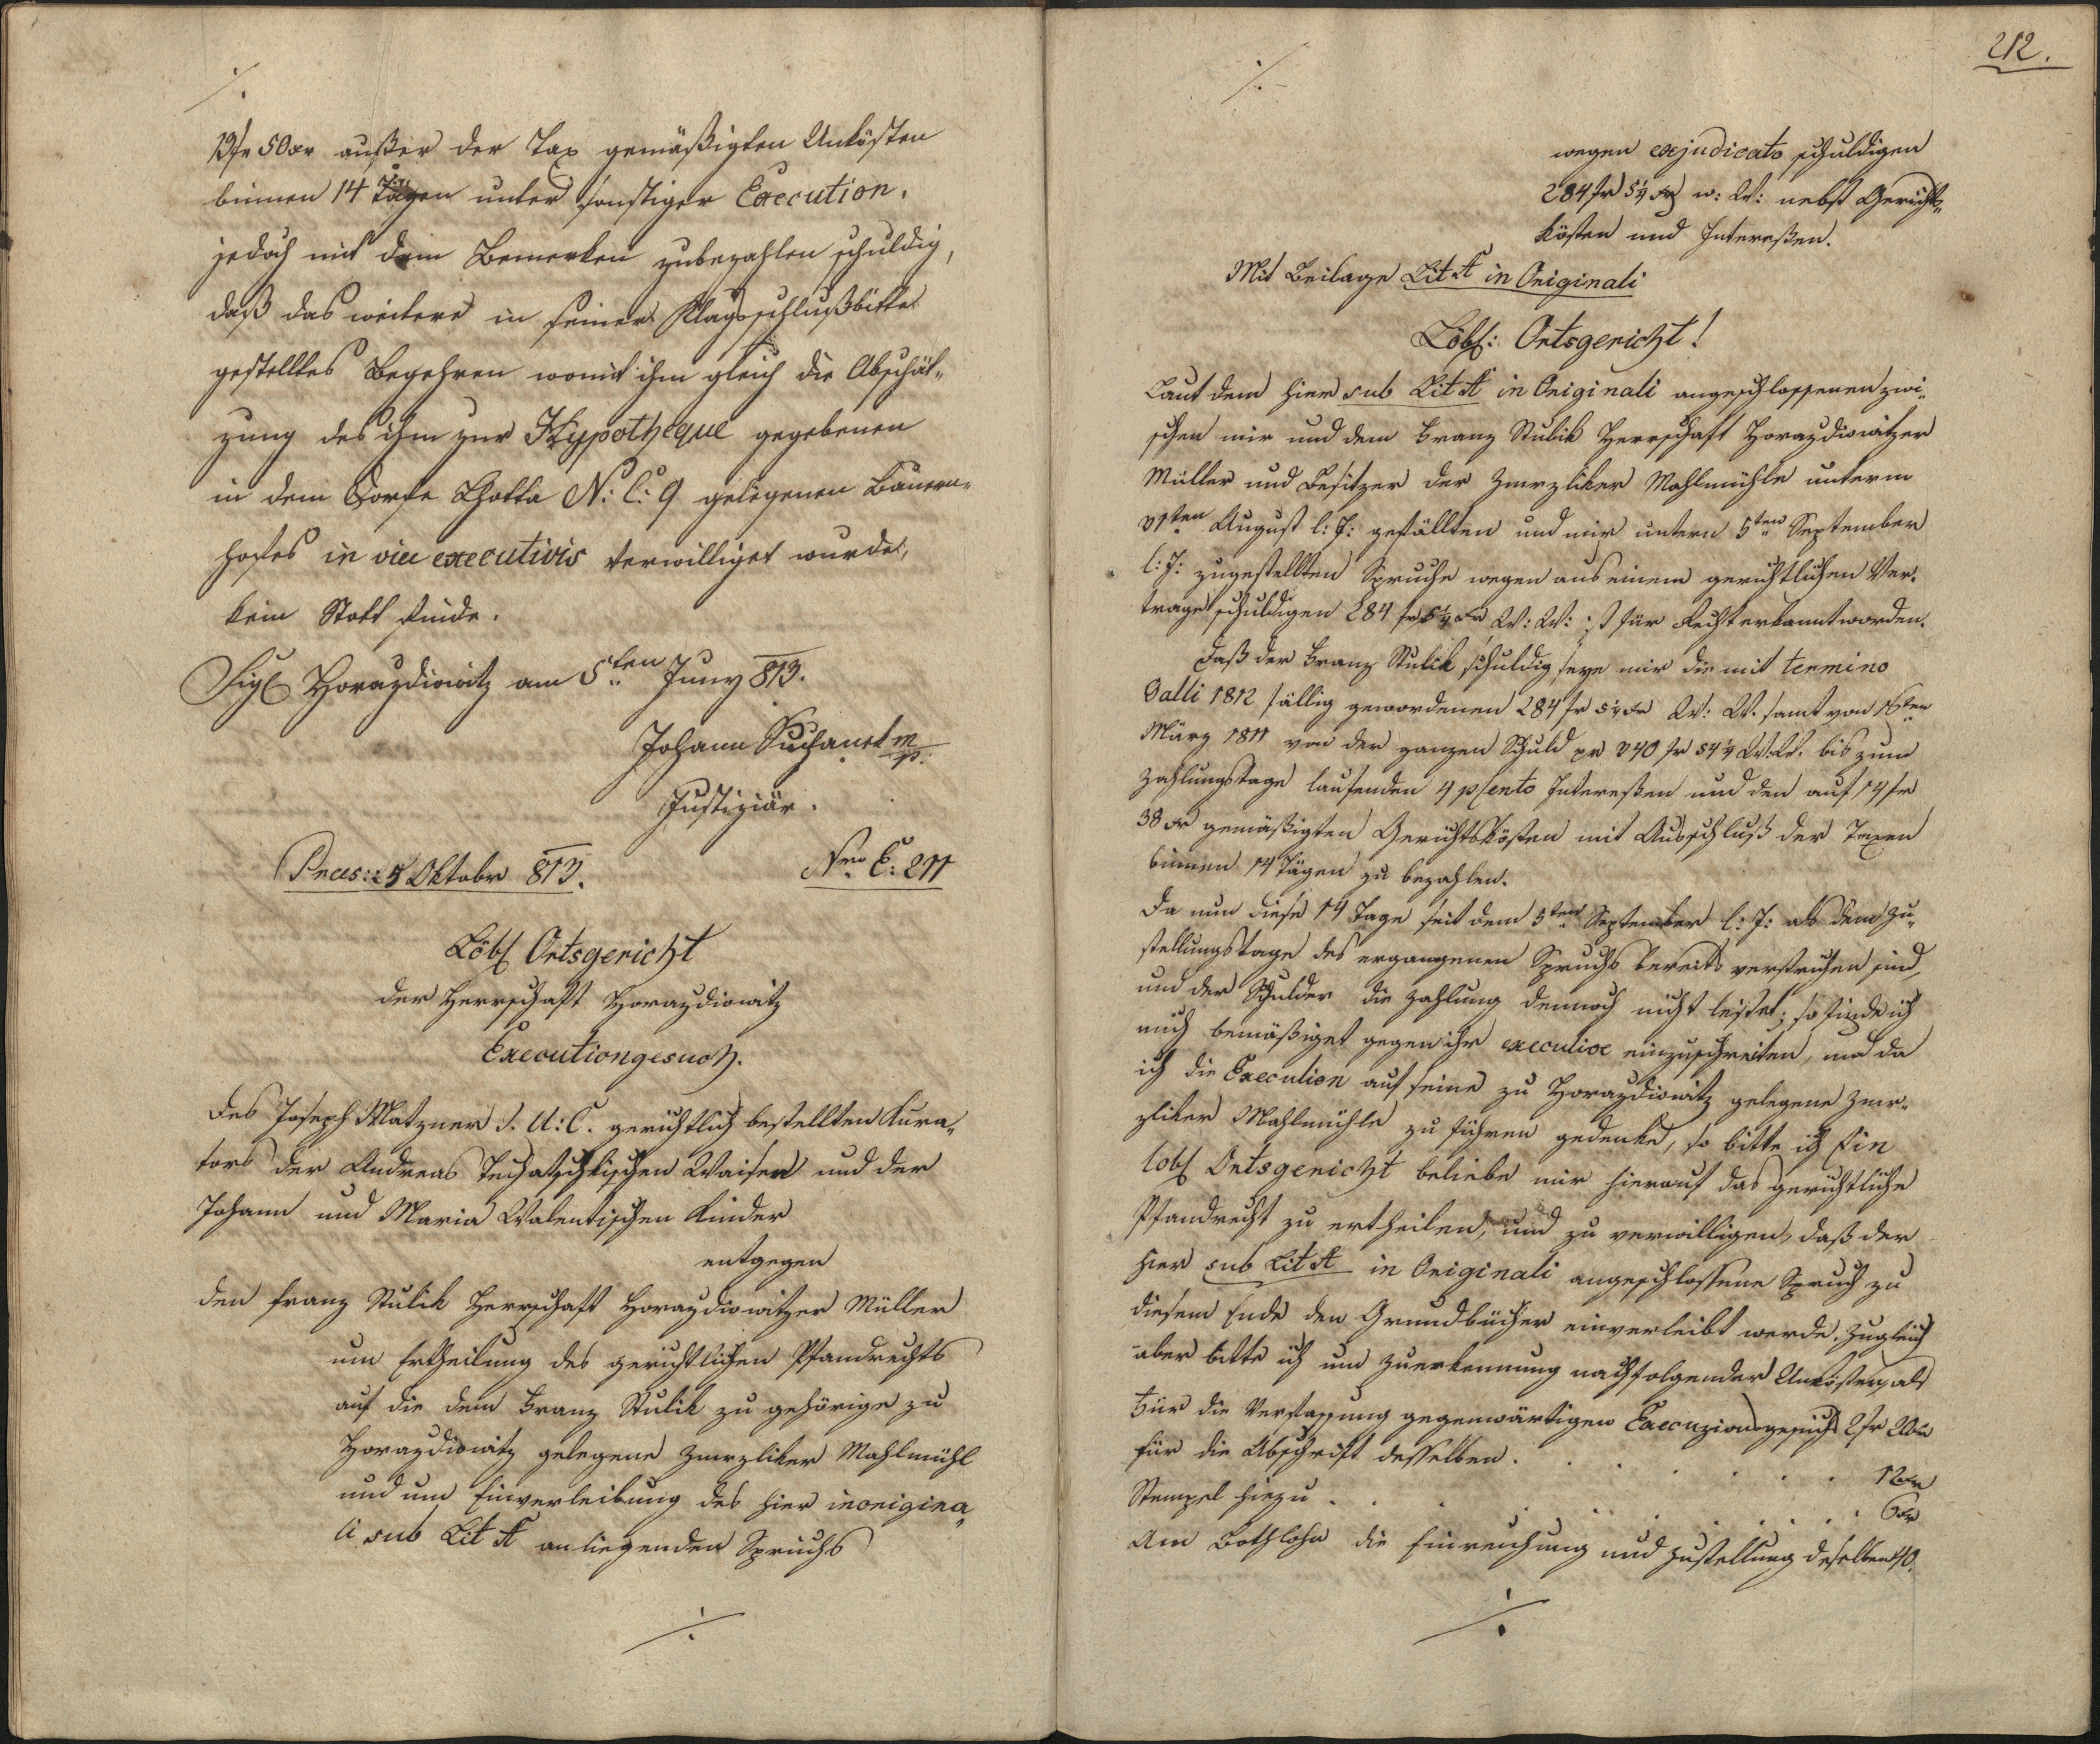 ./.
19 fr 50 xr außer der Tax gemäßigten Unkösten
binnen 14 Tägen unter sonstiger Execution,
jedoch mit dem Bemerken zubezahlen schuldig,
daß das weitere in seiner Klagsschlußbitte
gestelltes Begehren womit ihm gleich die Abschät„
zung des ihm zur Hypotheque gegebenen
in dem Dorfe Lhotta N: C: 9 gelegenen Bauern„
hofes in via executivis verwilliget wurde,
kein Statt finde.
Sigl Horazdiowitz am 5ten Juny 813.
Johann Suchanek m/p.
Justiziär.
Praes: 5 Oktobr 813.
Nro E: 211
Löbl Ortsgericht
der Herrschaft Horazdiowitz
Executiongesuch.
des Joseph Matzner J. U: C. gerichtlich bestellten Kura„
tors der Andreas Tuchatschkischen Waisen und der
Johann und Maria Valentischen Kinder
entgegen
den Franz Stulik Herrschaft Horazdiowitzer Müller
um Ertheilung des gerichtlichen Pfandrechts
auf die dem Franz Stulik zu gehörige zu
Horazdiowitz gelegene Zmrzliker Mahlmühl
und um Einverleibung des hier in origina„
li sub Lit A anliegenden Spruchs
./.
212.
./.
wegen ex judicato schuldigen
284 fr 5¼ xr w: W: nebst Gerichts„
kösten und Intereßen.
Mit Beilage Lit A in Originali
Löbl: Ortsgericht!
Laut dem hier sub Lit A in Originali angeschlossenen zwi„
schen mir und dem Franz Stulik Herrschaft Horazdiowitzer
Müller und Besitzer der Zmrzliker Mahlmühle unterm
31ten August l: J: gefällten und mir untern 5ten September
l: J: zugestellten Spruche wegen aus einem gerichtlichen Ver„
trage schuldigen 284 fr 5¼ xr W: W: ist für Recht erkannt worden.
Daß der Franz Stulik schuldig seye mir die mit termino
Galli 1812 fällig gewordenen 284 fr 5¼ xr W: W. samt von 16ten
März 1811 von der ganzen Schuld pr 340 fr 54¼ W: W. bis zum
Zahlungstage laufenden 4 p Cento Intereßen und den auf 14 fr
38 xr gemäßigten Gerichtskösten mit Ausschluß der Taxen
binnen 14 Tägen zu bezahlen.
Da nun diese 14 Tage seit dem 5ten September l: J: als dem Zu„
stellungstage des ergangenen Spruchs bereits verstrichen sind,
und der Schulder die Zahlung dennoch nicht leistet; so finde ich
mich bemäßiget gegen ihr executive einzuschreiten, und da
ich die Execution auf seine zu Horazdiowitz gelegene Zmr„
zliker Mahlmühle zu führen gedenke, so bitte ich Ein
löbl Ortsgericht beliebe mir hierauf das gerichtliche
Pfandrecht zu ertheilen, und zu verwilligen, daß der
hier sub Lit A in Originali angeschlossene Spruch zu
diesem Ende den Grundbücher einverleibt werde, zugleich
aber bitte ich um Zuerkennung nachfolgender Unkösten, als
Für die Verfassung gegenwärtigen Execuzionsgesuchs 2 fr 20 xr
für die Abschrift desselben . . . . . . 12 xr
Stempel hiezu . . . . . . . . 6 xr
Am Bothlohn die Einreichung und Zustellung deselben 40.
./.